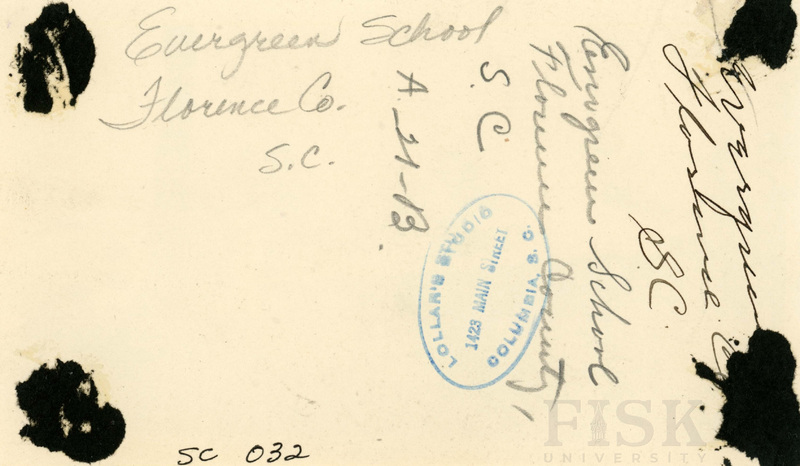 Evergreen School
Florence Co.
S.C.
A 21-13
Evergreen School
Florence County,
S.C.
Evergreen
Florence Co
S.C.
LOLLAR'S STUDIO
1423 MAIN STREET
COLUMBIA, S. C.
SC 032
FISK
UNIVERSITY